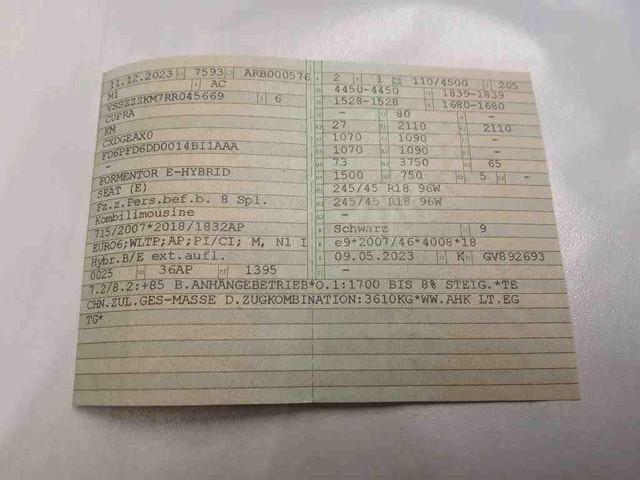 11.12.2023 7593 ARB000576
M1 AC
VSSZZZKM7RR045669 6
CUPRA
KM
CXDGEAX0
FD6PFD6DD0014BI1AAA
-
FORMENTOR E-HYBRID
SEAT (E)
Fz.z.Pers.bef.b. 8 Spl.
Kombilimousine
715/2007*2018/1832AP
EURO6;WLTP;AP;PI/CI; M, N1 I
Hybr.B/E ext.aufl.
0025 36AP 1395
2 1 110/4500 205
4450-4450 1839-1839
1528-1528 1680-1680
- 80 -
27 2110 2110
1070 1090 -
1070 1090 -
73 3750 65
1500 750 5 -
245/45 R18 96W
245/45 R18 96W
-
Schwarz 9
e9*2007/46*4008*18
09.05.2023 K GV892693
7.2/8.2:+85 B.ANHÄNGEBETRIEB*O.1:1700 BIS 8% STEIG.*TE
CHN.ZUL.GES-MASSE D.ZUGKOMBINATION:3610KG*WW.AHK LT.EG
TG*